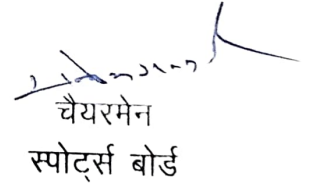 चैयरमेन
स्पोर्ट्स बोर्ड